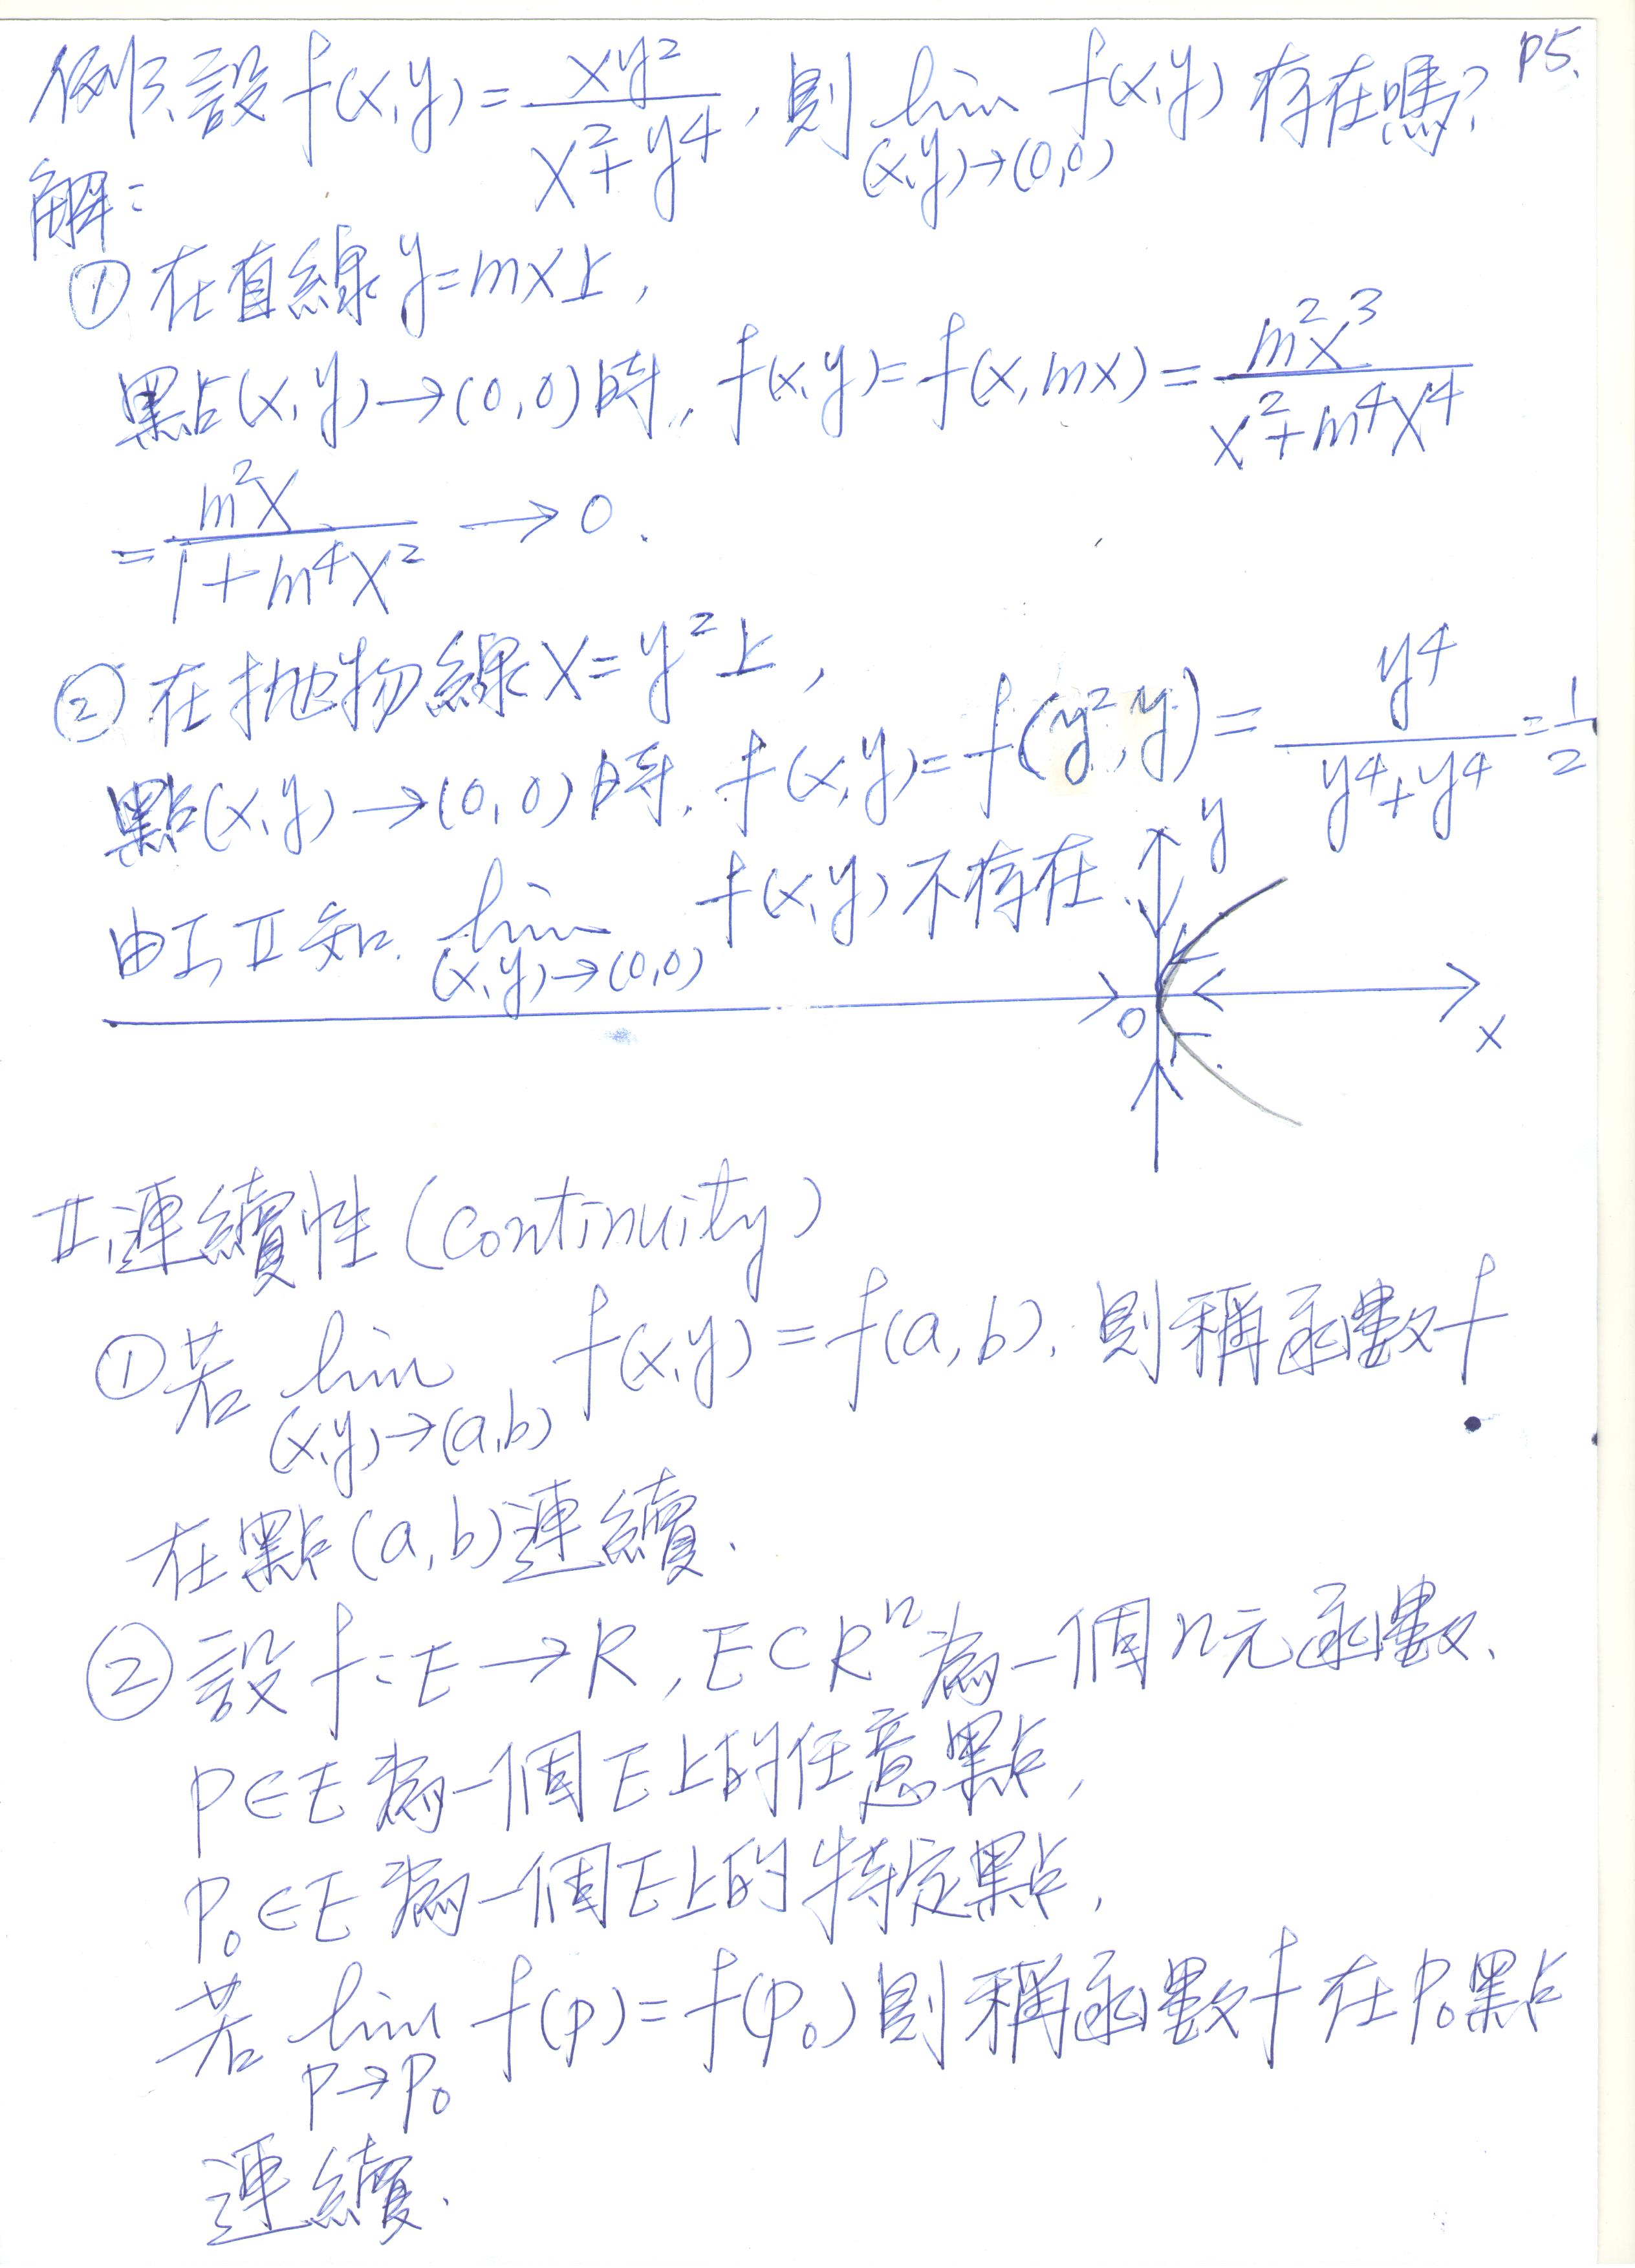 P5.
例3. 設 f(x,y) = xy²/(x²+y⁴), 則 lim f(x,y) 存在嗎?
(x,y)→(0,0)
解:
① 在直線 y=mx上,
點(x,y)→(0,0)時, f(x,y)= f(x,mx) = m²x³/(x²+m⁴x⁴)
= m²x/(1+m⁴x²) → 0.
② 在拋物線 x=y²上,
點(x,y)→(0,0)時, f(x,y)= f(y²,y) = y⁴/(y⁴+y⁴) = 1/2
由I, II 知. lim f(x,y) 不存在.
(x,y)→(0,0)
y
0
x
II. 連續性 (Continuity)
① 若 lim f(x,y) = f(a,b), 則稱函數 f
(x,y)→(a,b)
在點(a,b)連續.
② 設 f:E→R, E⊂Rⁿ 為一個n元函數.
P∈E 為一個E上的任意點,
P₀∈E 為一個E上的特定點,
若 lim f(P) = f(P₀) 則稱函數 f 在P₀點
P→P₀
連續.